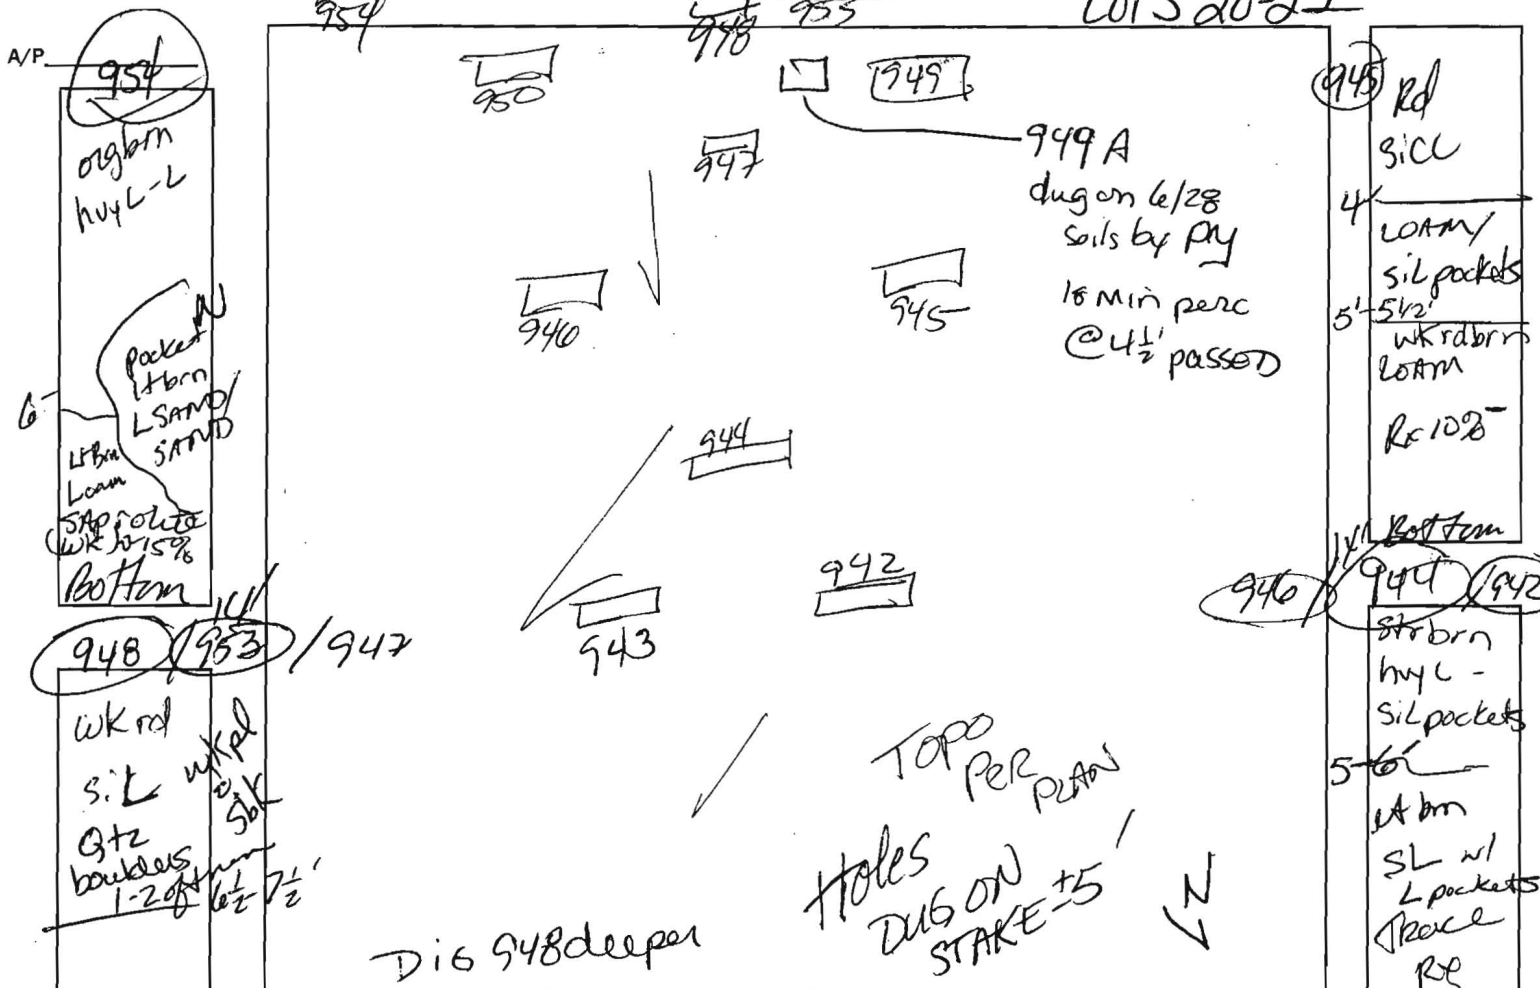 954
948
955
LOTS 20-21
A/P
954
orgbrn
hvy L-L
pocket
ltbrn
L SAND/
SAND
6'
Lt Brn
Loam
SAProlite
WK to 15%
Bottom
14'
948 / 953 / 947
wk rd
siL
Qtz
boulders
1-2 ft
wkpl
sbk
6 1/2 - 7 1/2'
950
949
947
949 A
dug on 6/28
soils by
18 min perc
@ 4 1/2' passed
946
945
944
942
943
TOPO
PER
PLAN
Holes
DUG ON
STAKE ±5'
N
Dig 948 deeper
945
Rd
SiCL
4'
LOAM/
siL pockets
5'-5 1/2'
wk rdbrn
LOAM
Rx 10%-
14' Bottom
946 / 944 / 942
Strbrn
hvy L -
SiL pockets
5-6'
Lt brn
SL w/
L pockets
Trace
Rx